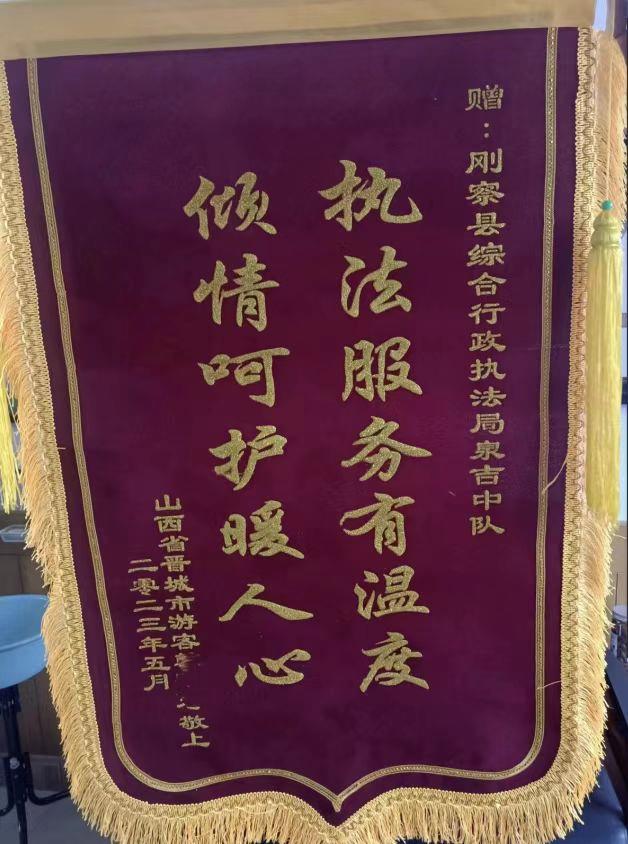 赠：刚察县综合行政执法局泉吉中队
执法服务有温度
倾情呵护暖人心
山西省晋城市游客 敬上
二零二三年五月